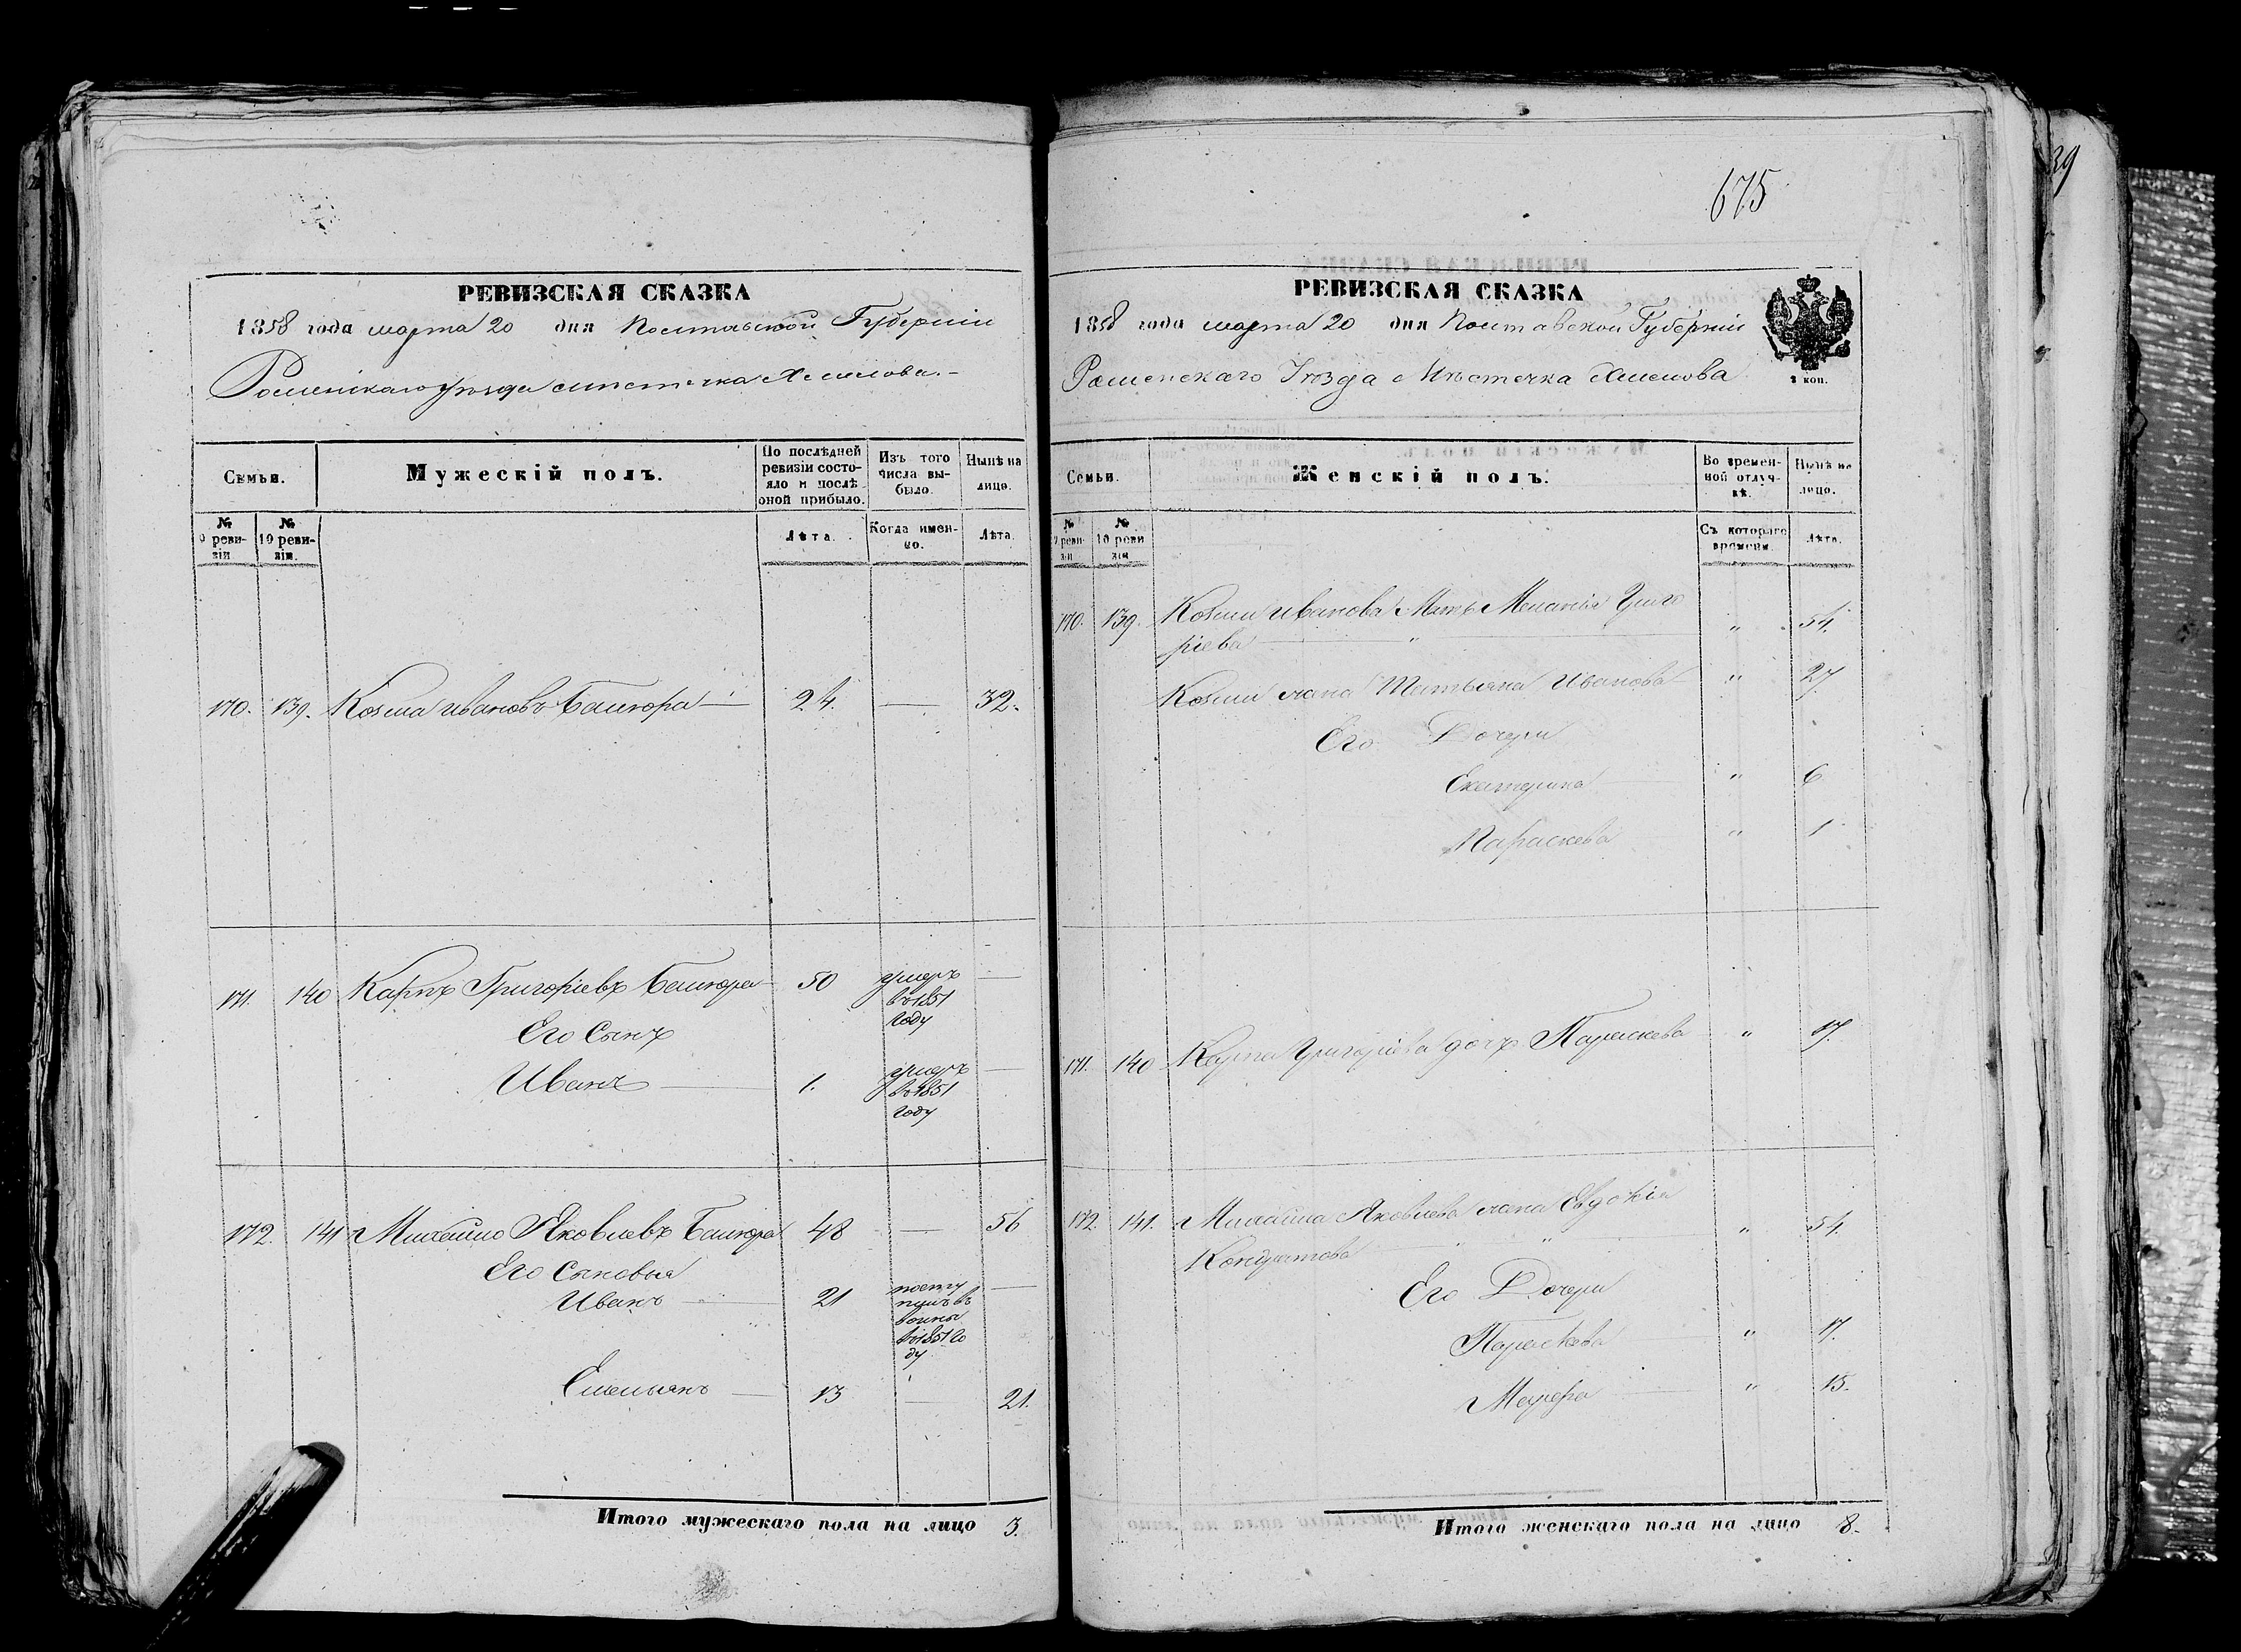 39
675
РЕВИЗСКАЯ СКАЗКА
1858 года марта 20 дня Полтавской Губерніи
Роменскаго Уѣзда мѣстечка Хмелова.
Семьи.
Мужескій полъ.
По послѣдней ревизіи состояло и послѣ оной прибыло.
Изъ того числа выбыло.
Нынѣ на лицо.
№ 9 ревизіи
№ 10 ревизіи.
Лѣта.
Когда именно.
Лѣта.
170. 139. Козма Ивановъ Башкора — 24. — 32.
171. 140 Карпъ Григорьевъ Башкора 50 умеръ —
въ 1851
году
Его Сынъ
Иванъ — 1. умеръ —
въ 1851
году
172. 141 Михайло Яковлевъ Башкора 48 — 56
Его Сыновья
Иванъ — 21 посту —
пилъ въ
воины
въ 1851 го
ду
Емельянъ — 13 — 21.
Итого мужескаго пола на лицо 3.
РЕВИЗСКАЯ СКАЗКА
1858 года марта 20 дня Полтавской Губерніи
Роменскаго Уѣзда Мѣстечка Хмелова
2 коп.
Семьи.
Женскій полъ.
Во временной отлучкѣ.
Нынѣ на лицо.
№ 9 ревизіи
№ 10 ревизіи
Съ котораго времени.
Лѣта.
170. 139. Козмы Иванова Мать Меланія Григо
ріева — " — " 54.
Козмы жена Татьяна Иванова " 27
Его Дочери
Екатерина — " 6
Параскева " 1
171. 140 Карпа Григоріева дочь Параскева " 17.
172. 141. Михайла Яковлева жена Евдокія
Кондратова " " 54.
Его Дочери
Параскева " 17.
Мавра — " 15.
Итого женскаго пола на лицо 8.